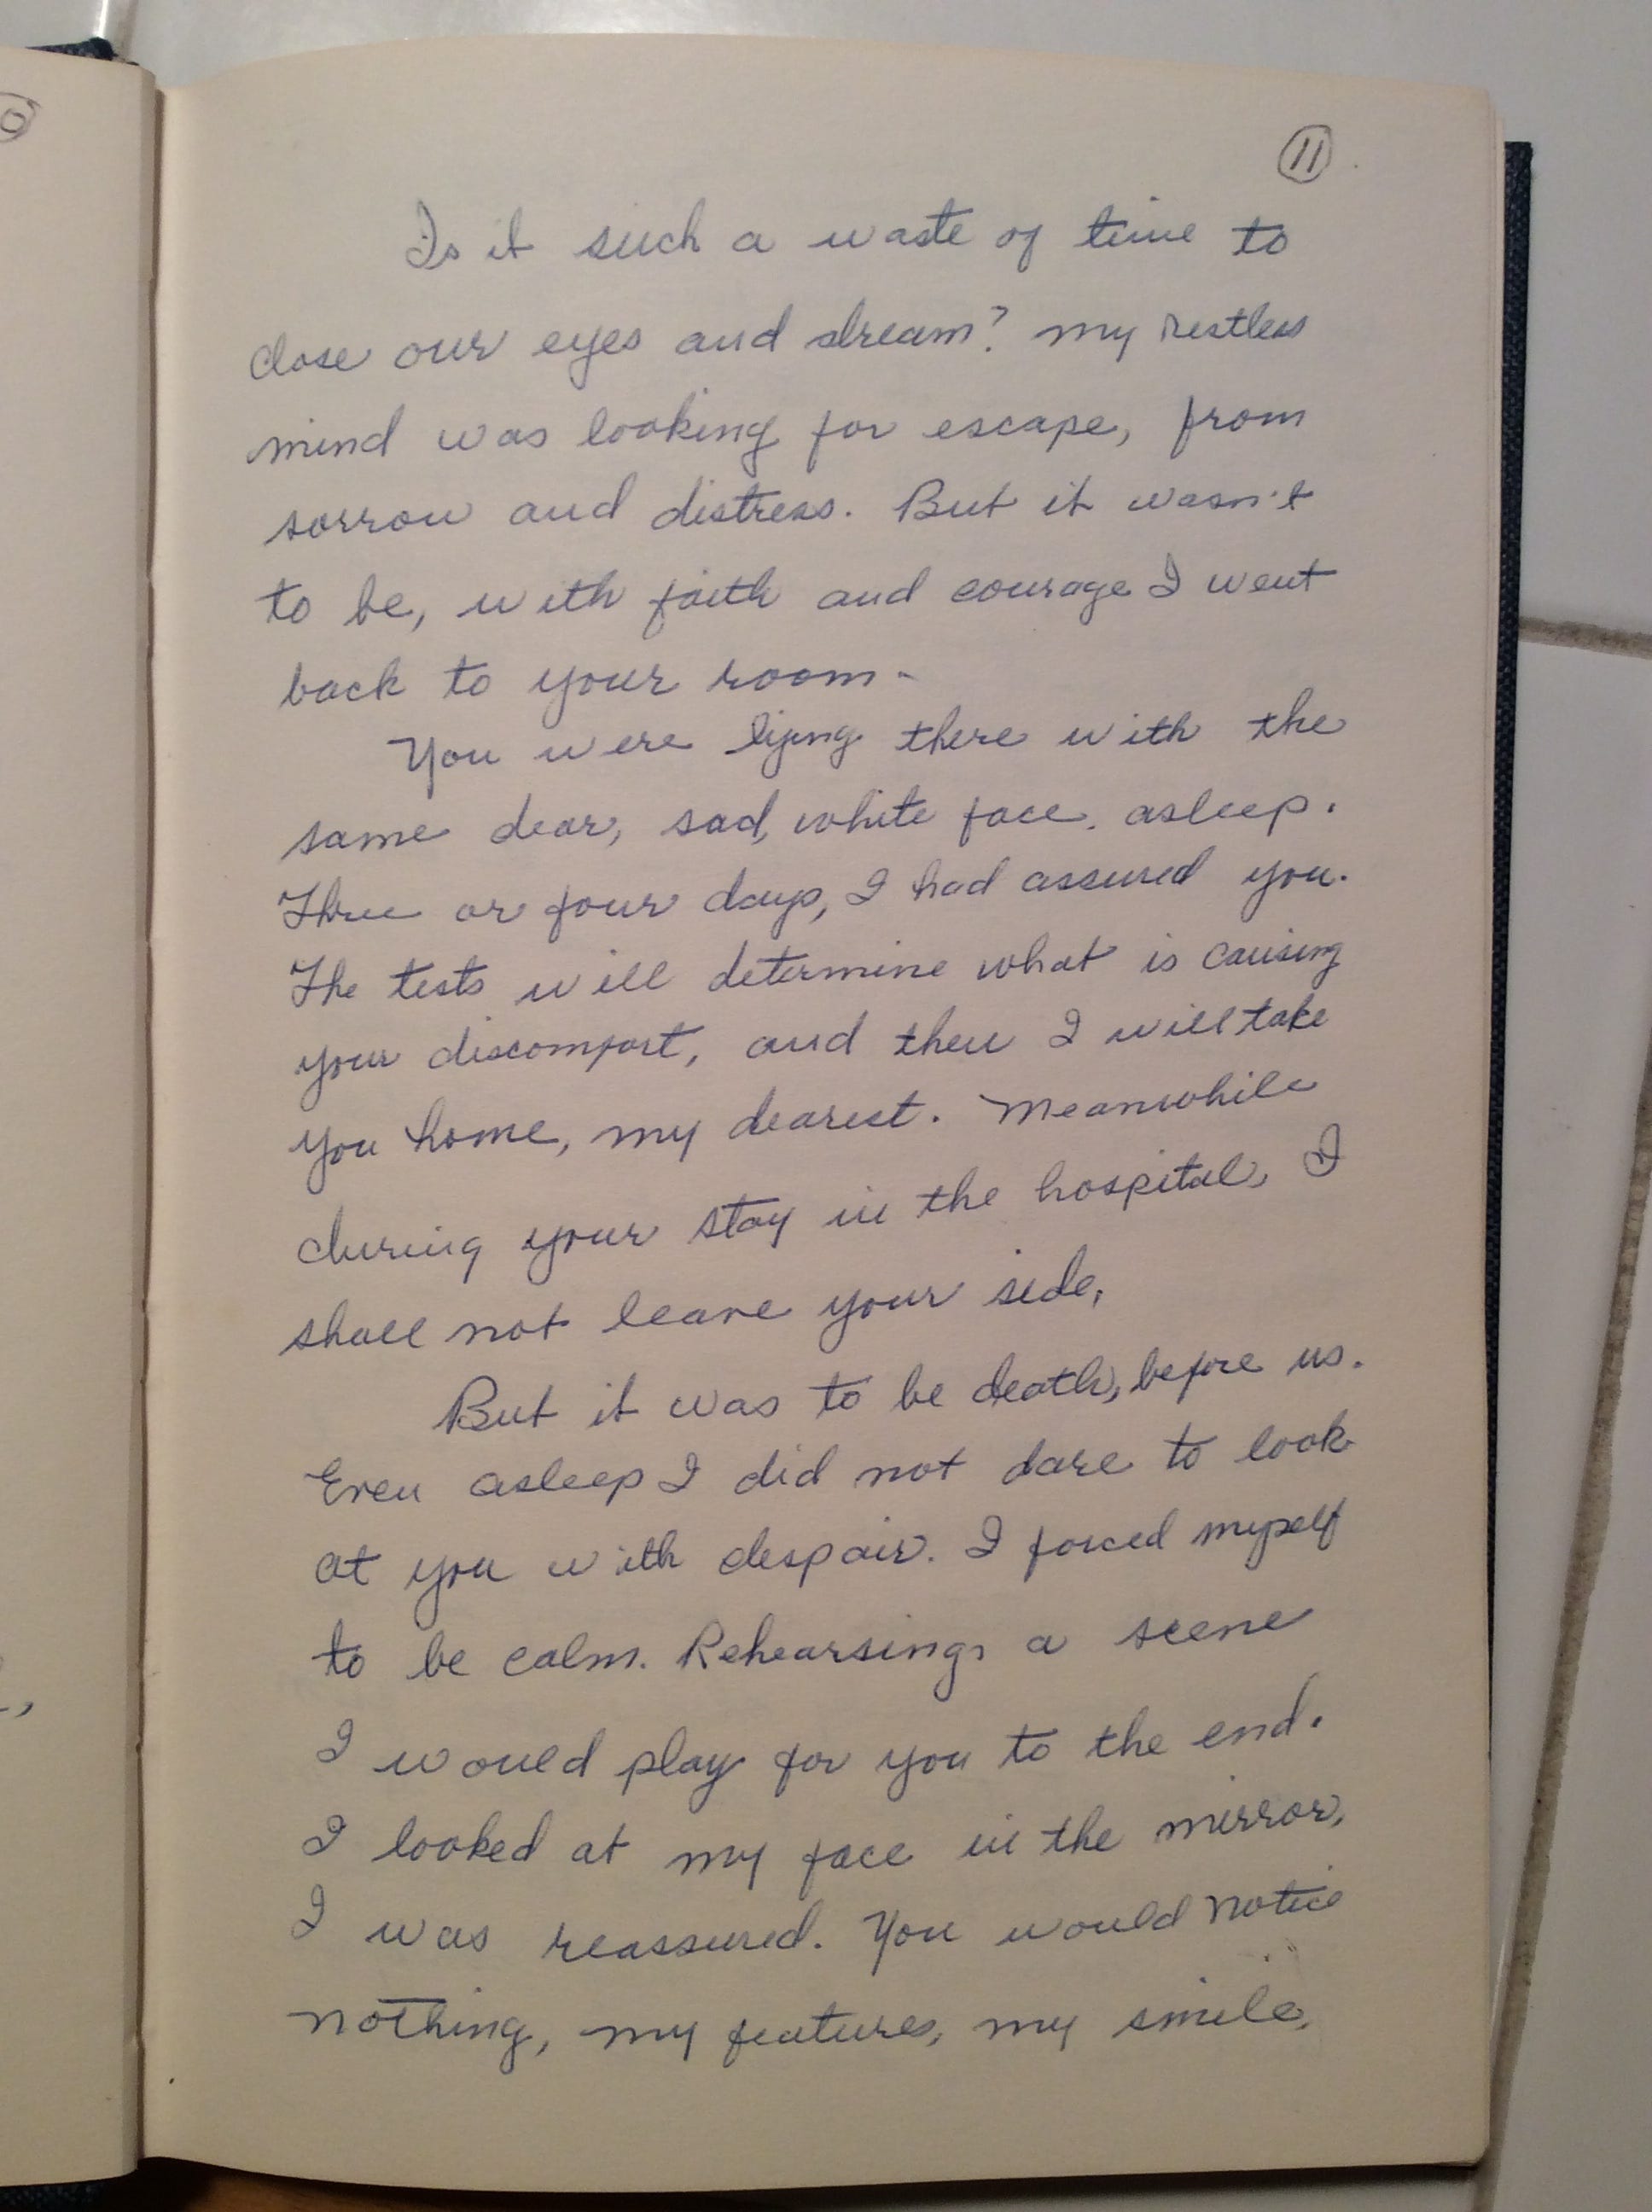 11
Is it such a waste of time to
close our eyes and dream? My restless
mind was looking for escape, from
sorrow and distress. But it wasn't
to be, with faith and courage I went
back to your room.
You were lying there with the
same dear, sad, white face, asleep.
Three or four days, I had assured you.
The tests will determine what is causing
your discomfort, and then I will take
you home, my dearest. Meanwhile
during your stay in the hospital, I
shall not leave your side,
But it was to be death, before us.
Even asleep I did not dare to look
at you with despair. I forced myself
to be calm. Rehearsing, a scene
I would play for you to the end.
I looked at my face in the mirror,
I was reassured. You would notice
nothing, my features, my smile,